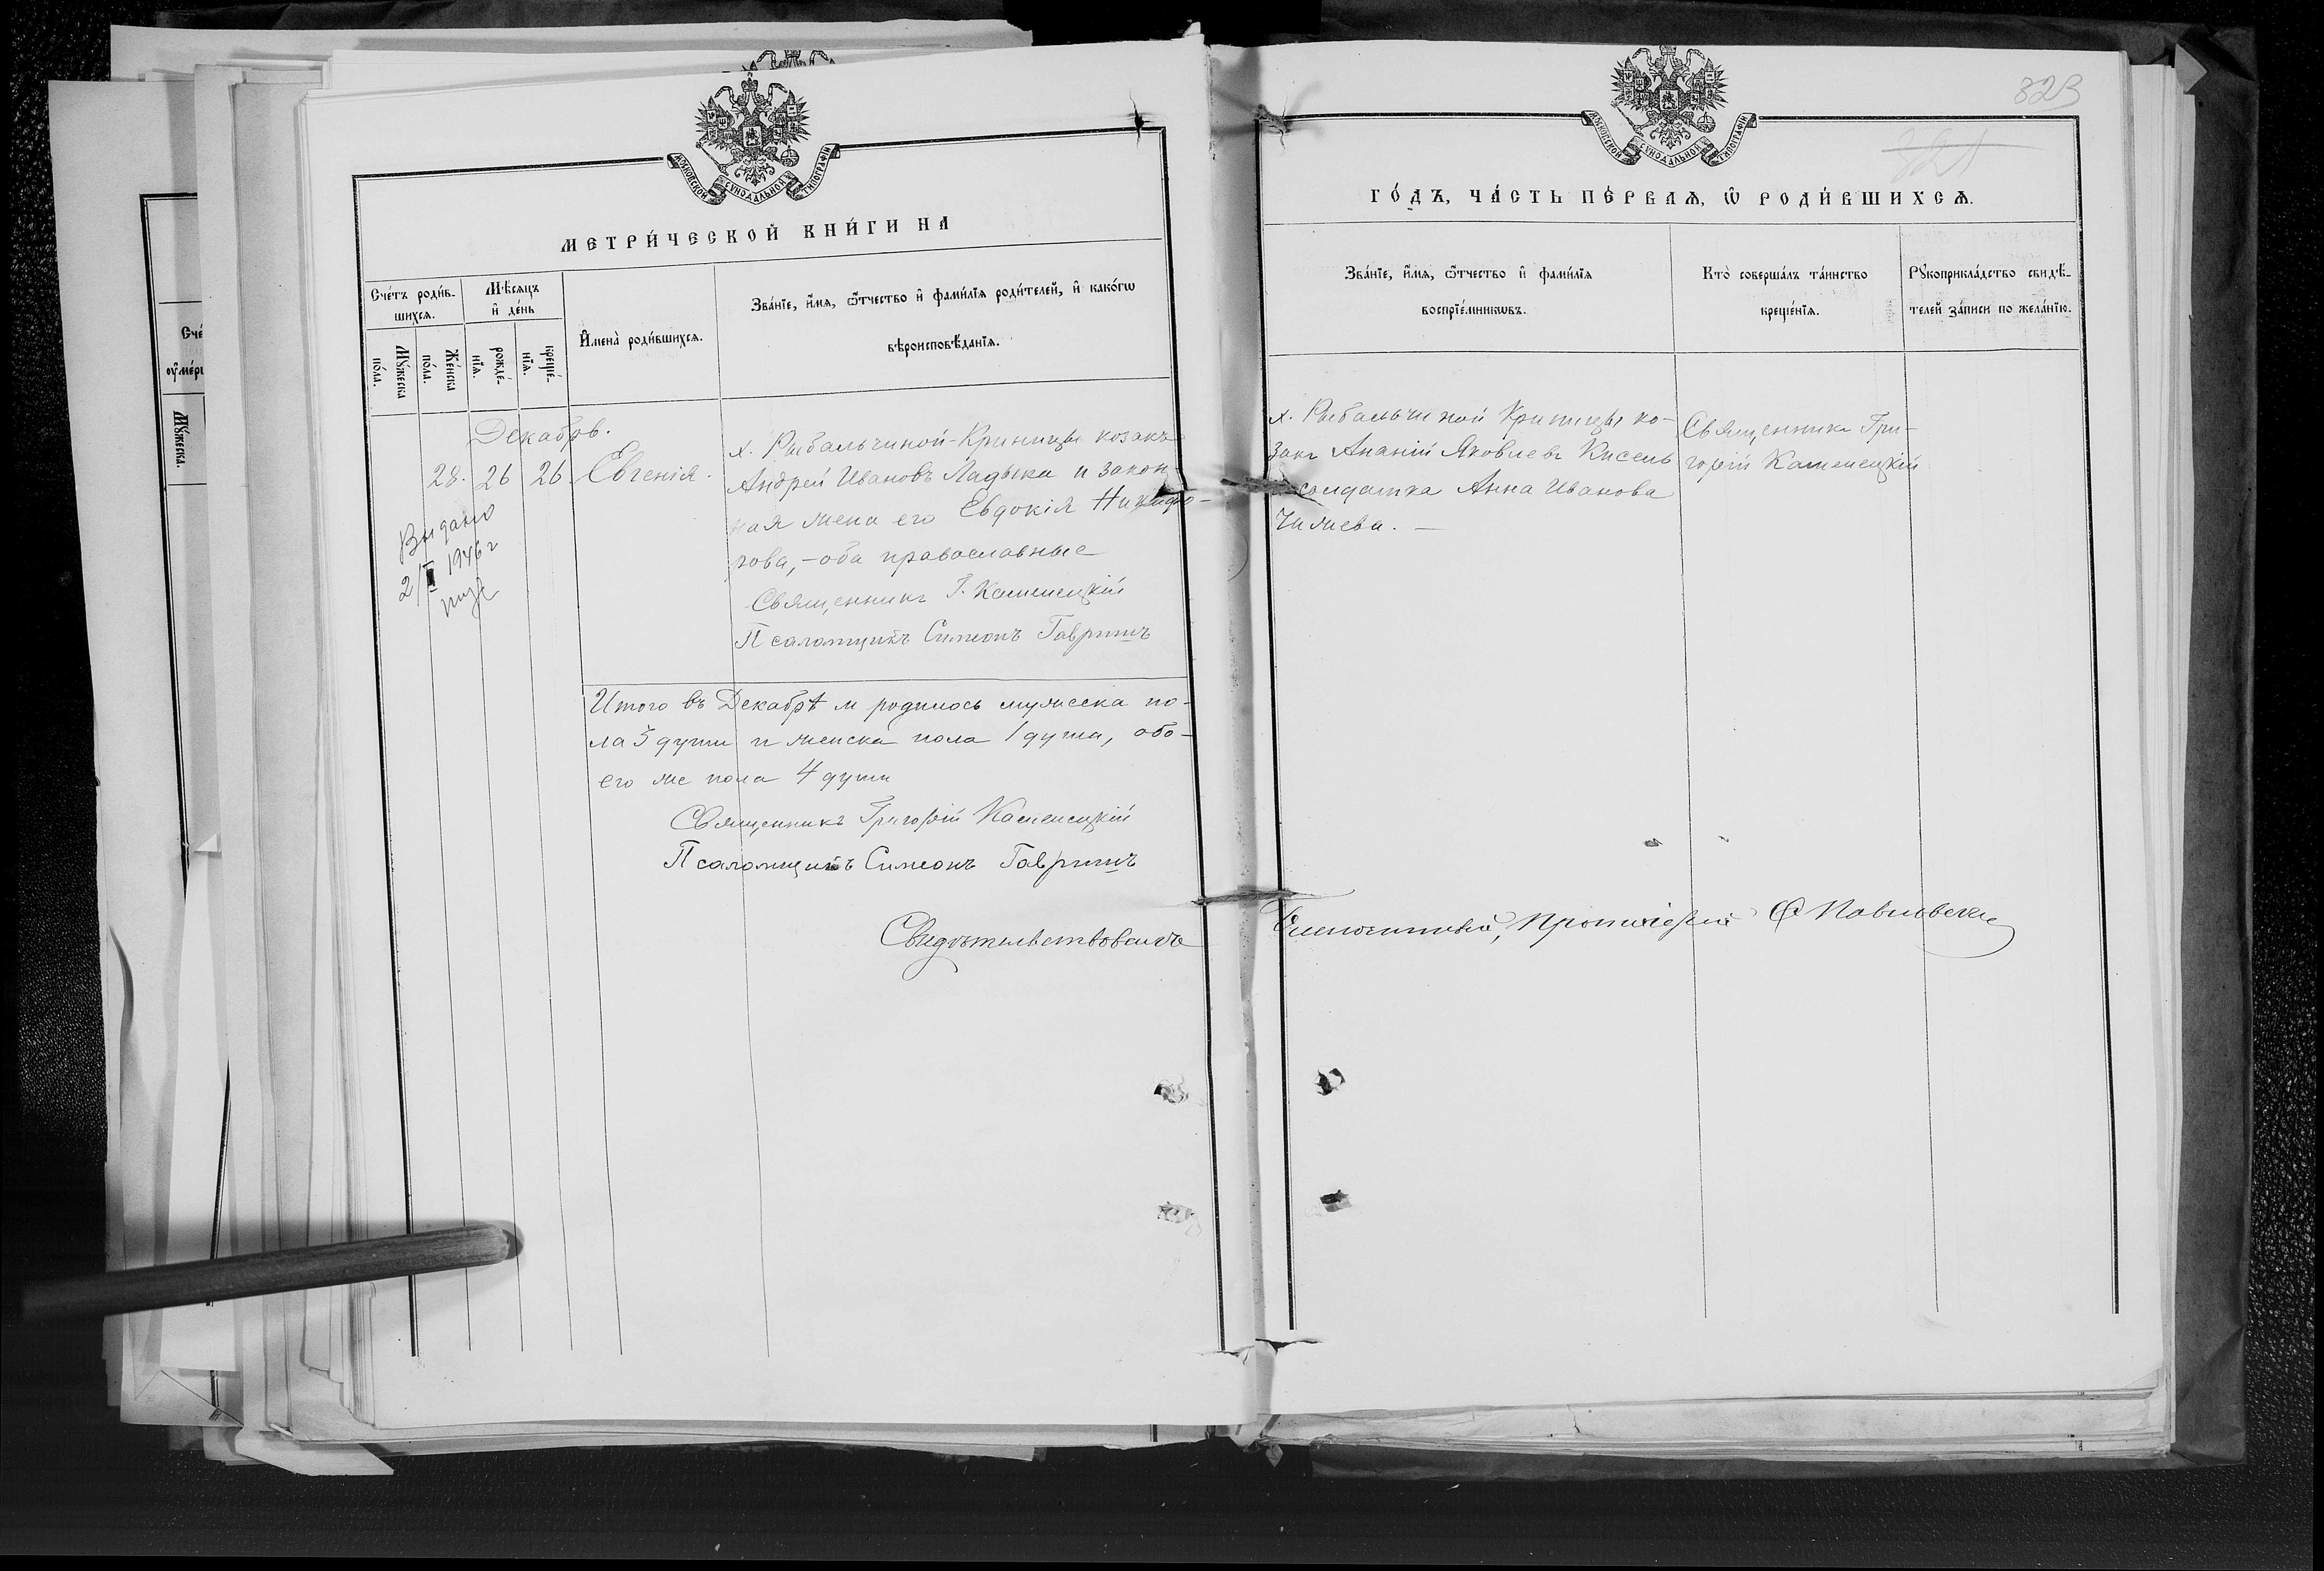 МОСКОВСКОЙ СѴНОДАЛЬНОЙ ТИПОГРАФІИ
МЕТРИ́ЧЕСКОЙ КНИ́ГИ НА
Сче́тъ роди́в-
шихсѧ.
Мѣ́сѧцъ
и҆ де́нь
И҆мена̀ роди́вшихсѧ.
Зва́нїе, и҆́мѧ, ѻ҆́тчество и҆ фами́лїѧ роди́телей, и҆ како́гѡ
вѣроисповѣ́данїѧ.
Мꙋ́жеска
по́ла.
Же́нска
по́ла.
рожде́-
нїѧ.
креще́-
нїѧ.
Декабрь.
28. 26 26 Евгенія.
х. Рыбальчиной-Криницы козакъ
Андрей Ивановъ Ладыка и закон-
ная жена его Евдокія Никифо-
рова, - оба православные
Священникъ Г. Каменецкій
Псаломщикъ Симеонъ Гавришъ
Выдано
1946 г
Итого въ Декабрѣ м родилось мужеска по-
ла 3 души и женска пола 1 душа, обо-
его же пола 4 души
Священникъ Григорій Каменецкій
Псаломщикъ Симеонъ Гавришъ
Свидѣтельствовалъ
323
321
МОСКОВСКОЙ СѴНОДАЛЬНОЙ ТИПОГРАФІИ
ГО́ДЪ, ЧА́СТЬ ПЕ́РВАѦ, Ѡ҆ РОДИ́ВШИХСѦ.
Зва́нїе, и҆́мѧ, ѻ҆́тчество и҆ фами́лїѧ
воспрїе́мникѡвъ.
Кто̀ соверша́лъ та́инство
креще́нїѧ.
Рꙋкоприкла́дство свидѣ́-
телей за́писи по жела́нїю.
х. Рыбальчиной Криницы ко-
закъ Ананій Яковлевъ Кисель
и солдатка Анна Иванова
Чижева. —
Священникъ Гри-
горій Каменецкій
Благочинный, Протоіерей Павловскій
Сче́
ᲂу҆ме́р
Мꙋ́жеска.